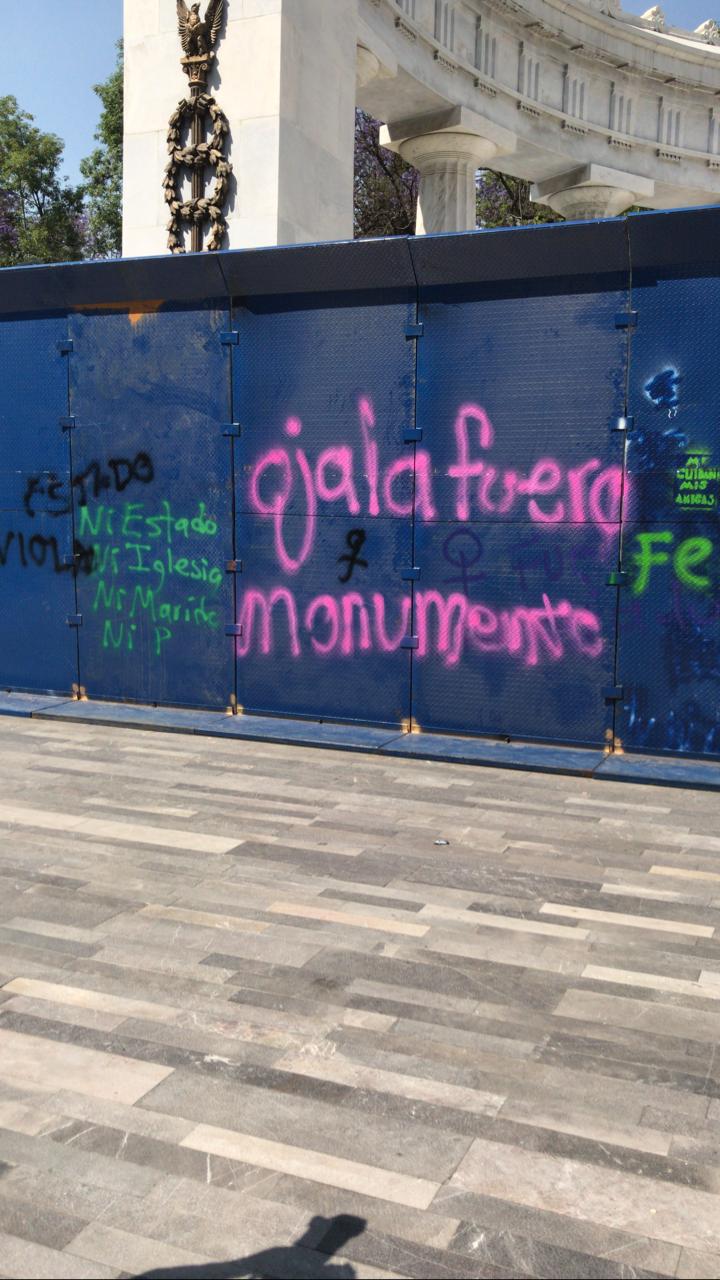 ESTADO
VIOLA
Ni Estado
Ni Iglesia
Ni Marido
Ni P
ojala fuera
monumento
ME
CUIDAN
MIS
AMIGAS
Fe